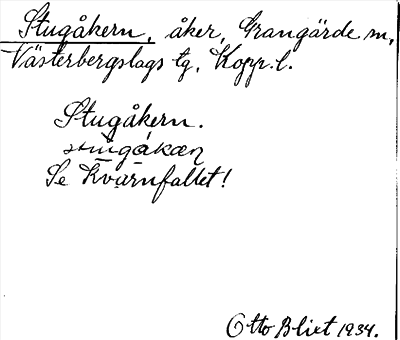 Stugåkern, åker, Grangärde sn,
Västerbergslags tg, Kopp. l.
Stugåkern.
stugåkæn
Se Kvarnfallet!
Otto Blixt 1934.